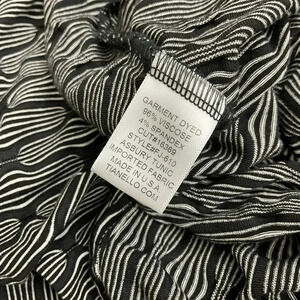 GARMENT DYED
96% VISCOSE
4% SPANDEX
CUT#16369
STYLE#F-J-610
ASBURY TUNIC
IMPORTED FABRIC
MADE IN U.S.A.
TIANELLO.COM